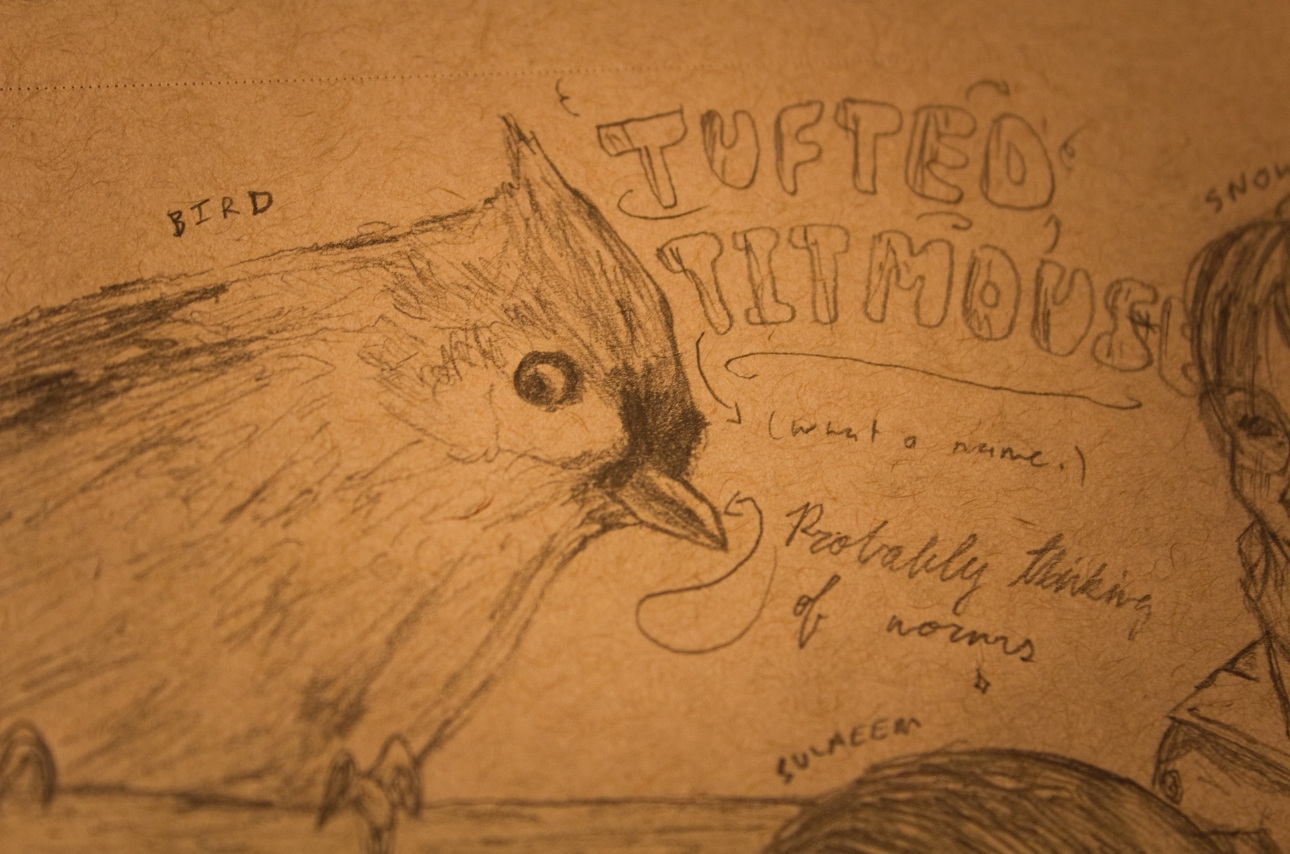 BIRD
TUFTED
TITMOUSE
(what a name.)
Probably thinking
of worms
SNOW
SULAEEM